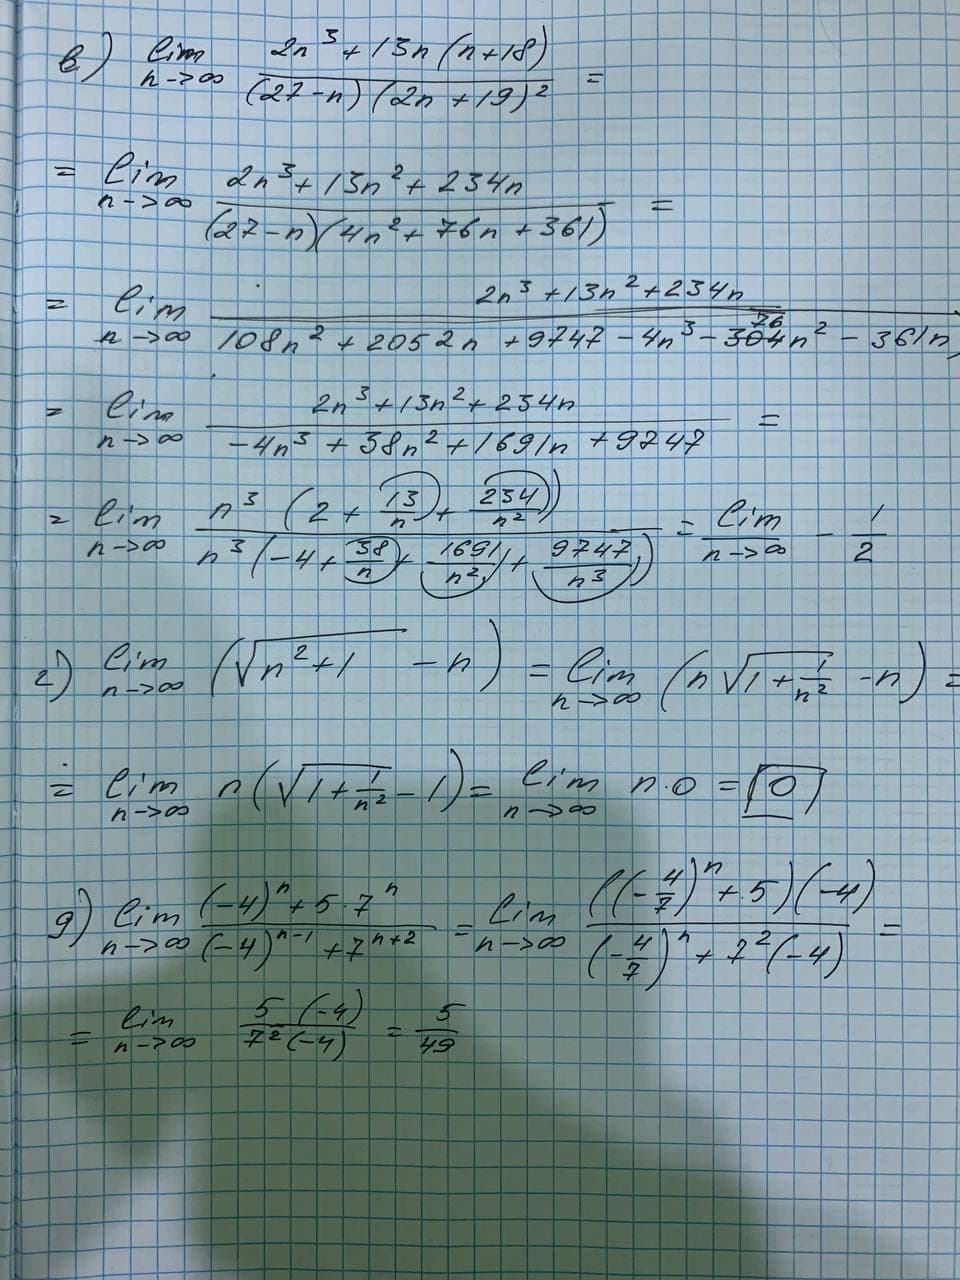 в) lim n→∞ (2n³ + 13n(n+18)) / ((27-n)(2n+19)²) =
= lim n→∞ (2n³ + 13n² + 234n) / ((27-n)(4n² + 76n + 361)) =
= lim n→∞ (2n³ + 13n² + 234n) / (108n² + 2052n + 9747 - 4n³ - 76n² - 361n)
= lim n→∞ (2n³ + 13n² + 234n) / (-4n³ + 38n² + 1691n + 9747) =
= lim n→∞ (n³(2 + 13/n + 234/n²)) / (n³(-4 + 38/n + 1691/n² + 9747/n³)) = lim n→∞ - 1/2
г) lim n→∞ (√(n²+1) - n) = lim n→∞ (n√(1 + 1/n²) - n) =
= lim n→∞ n(√(1 + 1/n²) - 1) = lim n→∞ n·0 = 0
д) lim n→∞ ((-4)ⁿ + 5·7ⁿ) / ((-4)ⁿ⁻¹ + 7ⁿ⁺²) = lim n→∞ (((-4/7)ⁿ + 5)(-4)) / ((-4/7)ⁿ + 7²(-4)) =
= lim n→∞ (5(-4)) / (7²(-4)) = 5/49